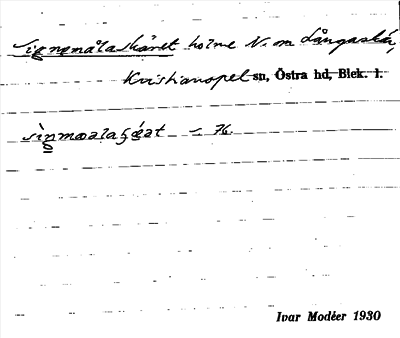 Signemålaskäret holme N. om Långaskär,
Kristianopel sn, Östra hd, Blek. l.
– 76.
Ivar Modéer 1930